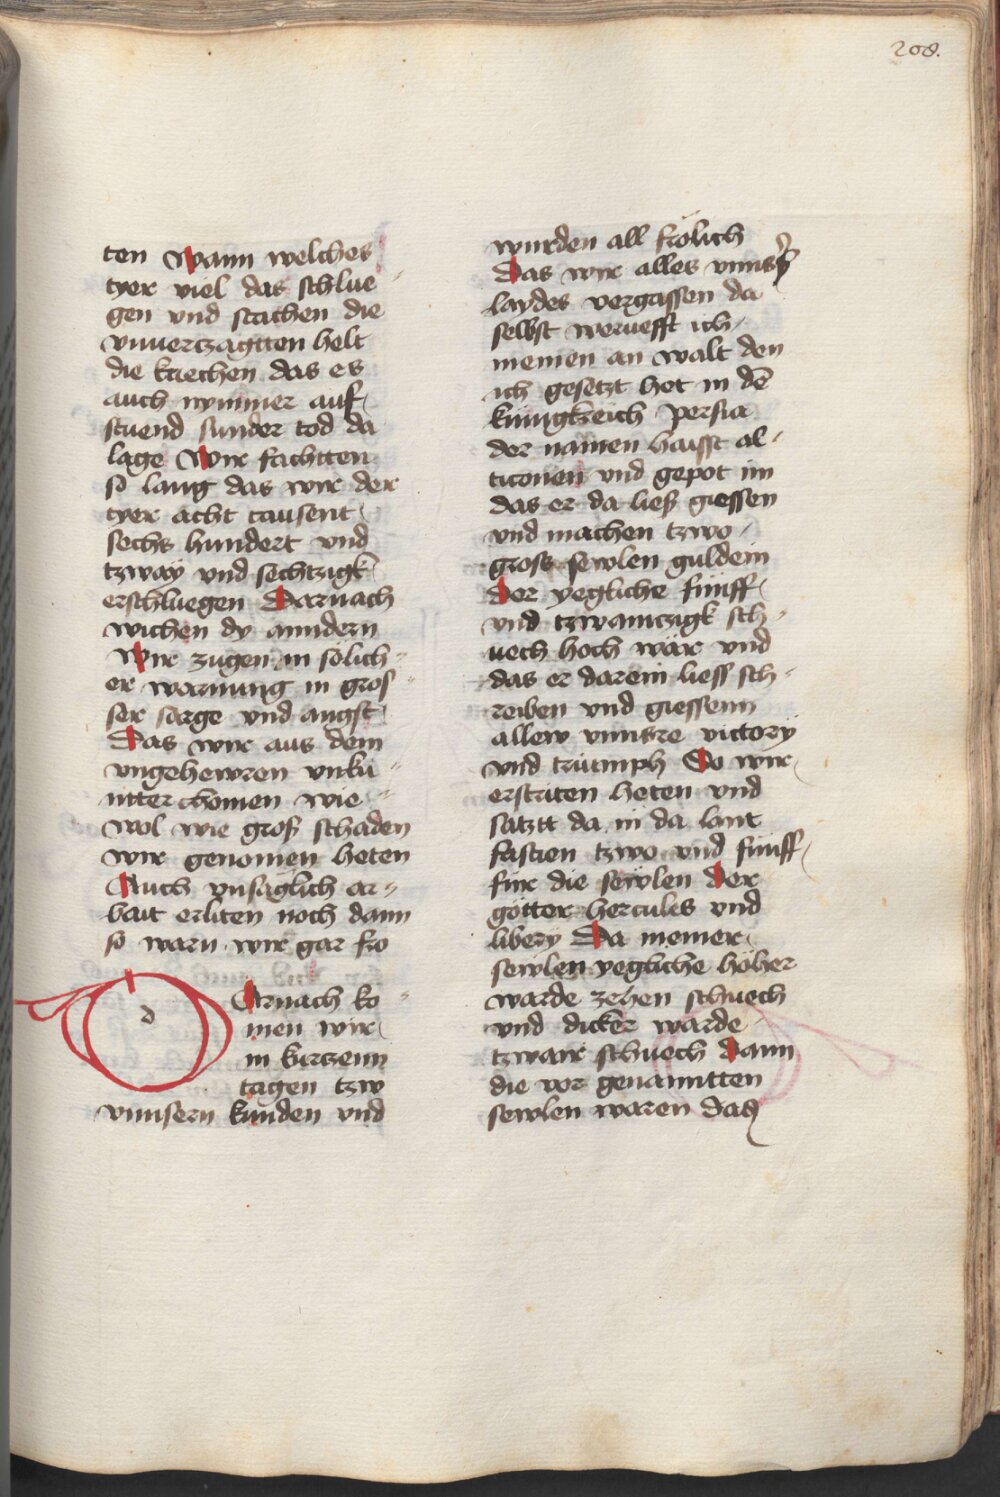 208.
ten Wann welches
tyer viel das schlue
gen vnd stachen die
vnuertzagtten helt
die kriechen das es
auch nymmer auf
stuend sunder tod da
lage Wir fachtten
so lang das wir der
tyer acht tausent
sechs hundert vnd
tzway vnd sechtzigk
erschluegen Darnach
wichen dy anndern
Wir zugen in sölich-
er warnung in gros-
ser sorge vnd angst
Das wir aus dem
vngehewren vnku
ntter chomen wie-
wol wie groß schaden
wir genomen heten
Auch vnsäglich ar-
bait erliten noch dann
so warn wir gar fro
Darnach ko-
men wir
in kurtzenn
tagen tzw
vnnsern kunden vnd
wurden all frölich
Das wir alles vnnsers
laydes vergassen da
selbst berueft ich
meinen an walt den
ich gesetzt het in dē
künigkreich persia
der namen haisst al-
ticonen vnd gepot im
das er da ließ giessen
vnd machen tzwo
gross sewlen guldein
Der yegliche fünff
vnd tzwainczigk sch-
uech hoch wär vnd
das er darein liess sch-
reiben vnd giessenn
allew vnnsre victory
vnd triumph Do wir
erstriten heten vnd
satztt da in da lant
fastien tzwo vnd fünff
für die sewlen der
götter hercules vnd
libery Da meiner
sewlen yegliche höher
warde zehen schuech
vnd dicker warde
tzwair schuech dann
die vor genanntten
sewlen waren das